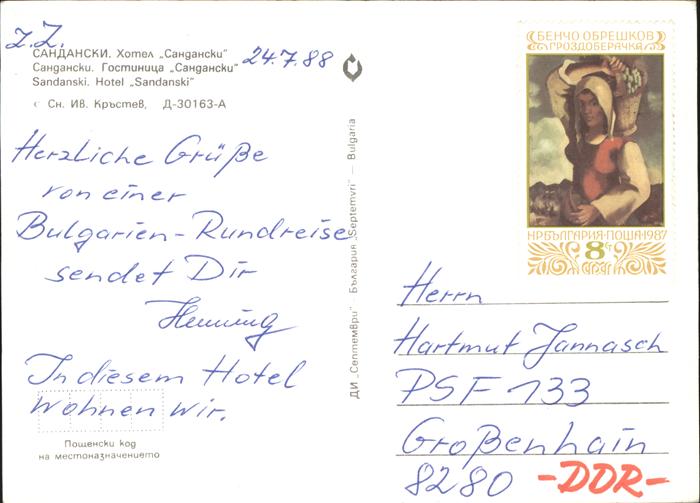 z.Z.
САНДАНСКИ. Хотел „Сандански"
24.7.88
Сандански. Гостиница „Сандански"
Sandanski. Hotel „Sandanski"
Сн. Ив. Кръстев, Д-30163-А
Herzliche Grüße
von einer
Bulgarien-Rundreise
sendet Dir
Henning
In diesem Hotel
wohnen wir.
Пощенски код
на местоназначението
ДИ „Септември" — България „Septemvri" — Bulgaria
БЕНЧО ОБРЕШКОВ
ГРОЗДОБЕРАЧКА
НР БЪЛГАРИЯ·ПОЩА·1987
8 СТ
Herrn
Hartmut Jannasch
PSF 133
Großenhain
8280 -DDR-